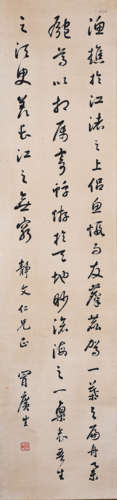 漁樵於江渚之上侶魚蝦而友麋鹿駕一葉之扁舟舉
匏尊以相屬寄蜉蝣於天地渺滄海之一粟哀吾生
之須臾羨長江之無窮 靜文仁兄正 冒廣生